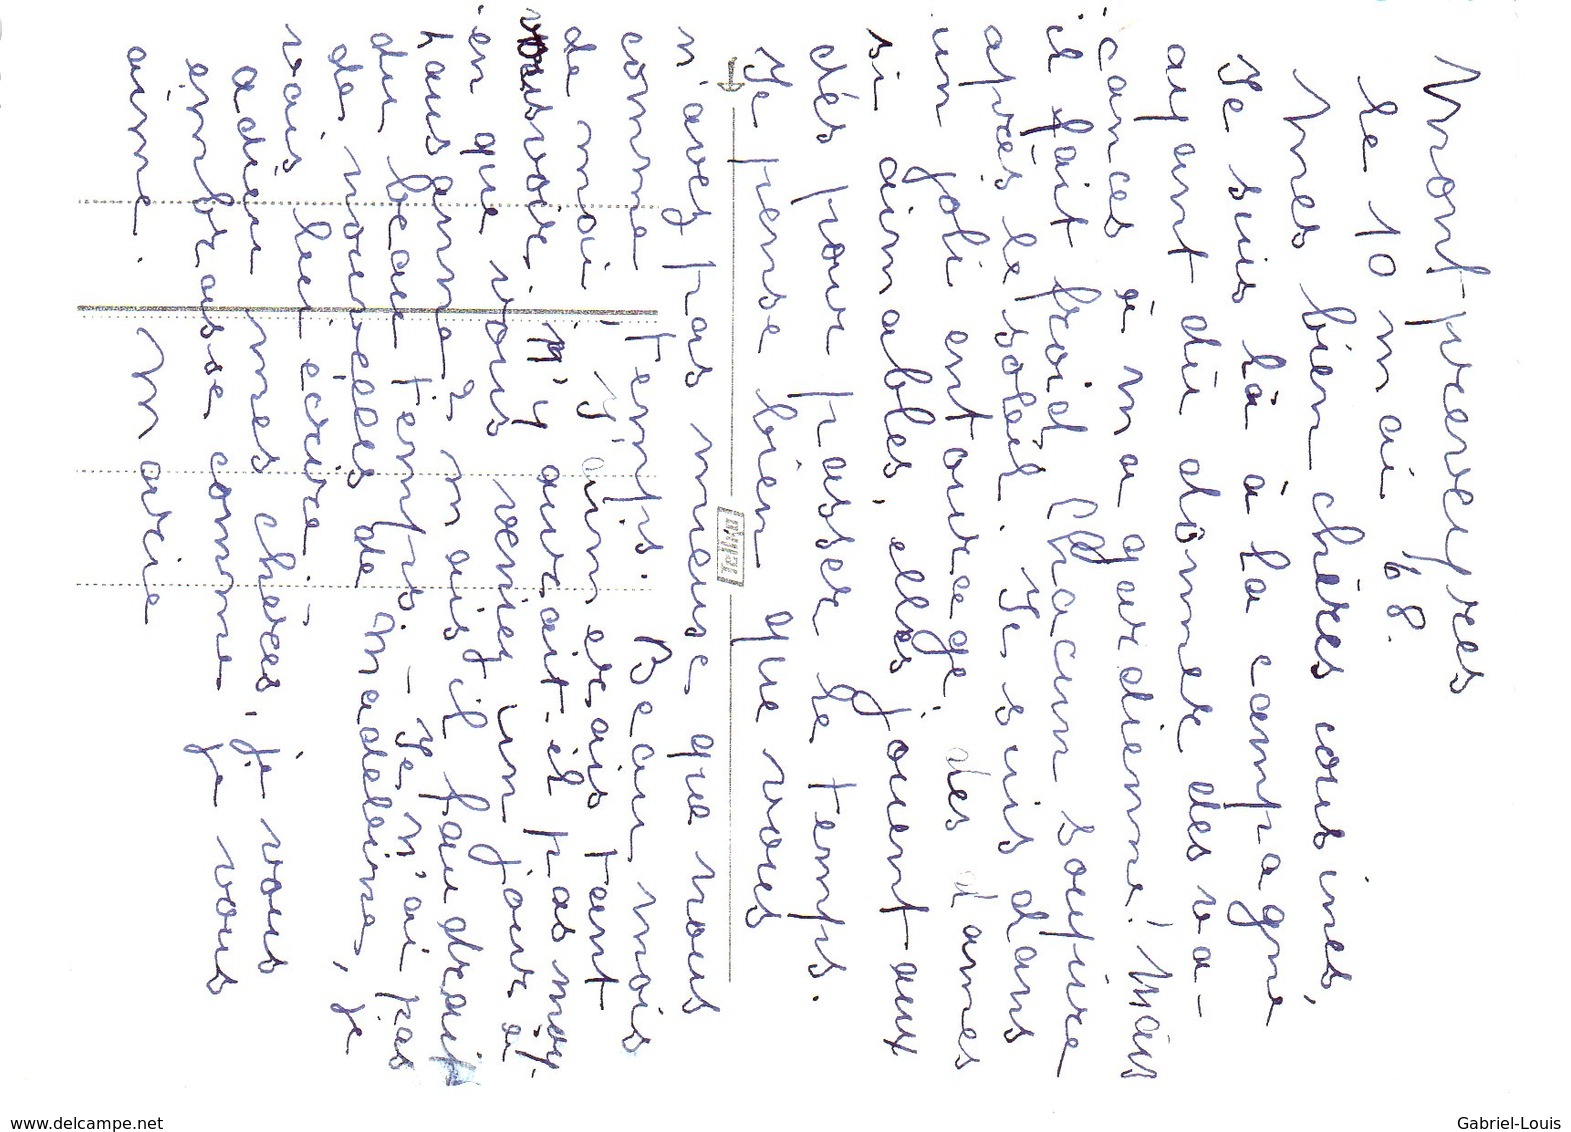 Montpreveyres
le 10 mai 68.
Mes bien chères cousines,
Je suis là à la campagne
ayant dû donner des va-
cances à ma gardienne! Mais
il fait froid, Chacun soupire
après le soleil. Je suis dans
un joli entourage, des dames
si aimables, elles jouent aux
dés pour passer le temps.
Je pense bien que vous
n'avez pas mieux que nous
comme temps. Beau mois
de mai! J'aimerais tant
vous voir. N'y aurait-il pas moy-
en que vous veniez un jour à
Lausanne? mais il faudrait
du beau temps. - Je n'ai pas
de nouvelles de Madeleine, je
vais lui écrire -
adieu mes chères, je vous
embrasse comme je vous
aime. Marie
Tellko
delcampe.net
Gabriel-Louis